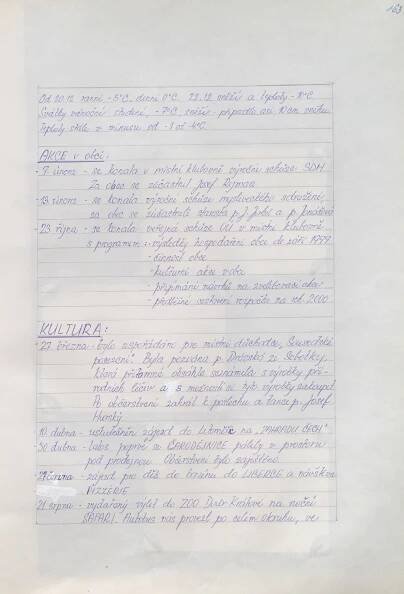 163
Od 20.12 ranní -5°C, denní 0°C. 22.12 sněží a teploty -10°C.
Svátky vánoční studené, -7°C, sněží - připadlo asi 10cm sněhu.
Teploty stále v mínusu od -1 až -4°C.
AKCE v obci:
- 7. února - se konala v místní klubovně výroční schůze SDH
Za obec se zúčastnil Josef Rejman
- 13. února - se konala výroční schůze mysliveckého sdružení
za obec se zúčastnili starosta p. a p.
- 23. října - se konala veřejná schůze OÚ v místní klubovně
s programem: - výsledky hospodaření obce do září 1999
- činnost obce
- kulturní akce v obci
- přijímání návrhů na zvelebování obce
- předběžné sestavení rozpočtu na rok 2000
KULTURA:
- 27. března - bylo uspořádáno pro místní důchodce, "Sousedské
posezení". Byla pozvána p. ze Sobotky,
která přítomné obsáhle seznámila s výrobky pří-
rodních léčiv a s možností si tyto výrobky zakoupit
Po občerstvení zahrál k poslechu a tanci p. Josef
Hurský
10. dubna - uskutečněn zájezd do Litoměřic na "ZAHRADU ČECH"
30. dubna - letos poprvé se ČARODĚJNICE pálily v prostoru
pod prodejnou. Občerstvení bylo zajištěno.
června - zájezd pro děti do bazénu do LIBERCE a návštěva
PIZZERIE
21. srpna - vydařený výlet do ZOO Dvůr Králové na noční
SAFARI. Autobus nás provezl po celém okruhu, ve